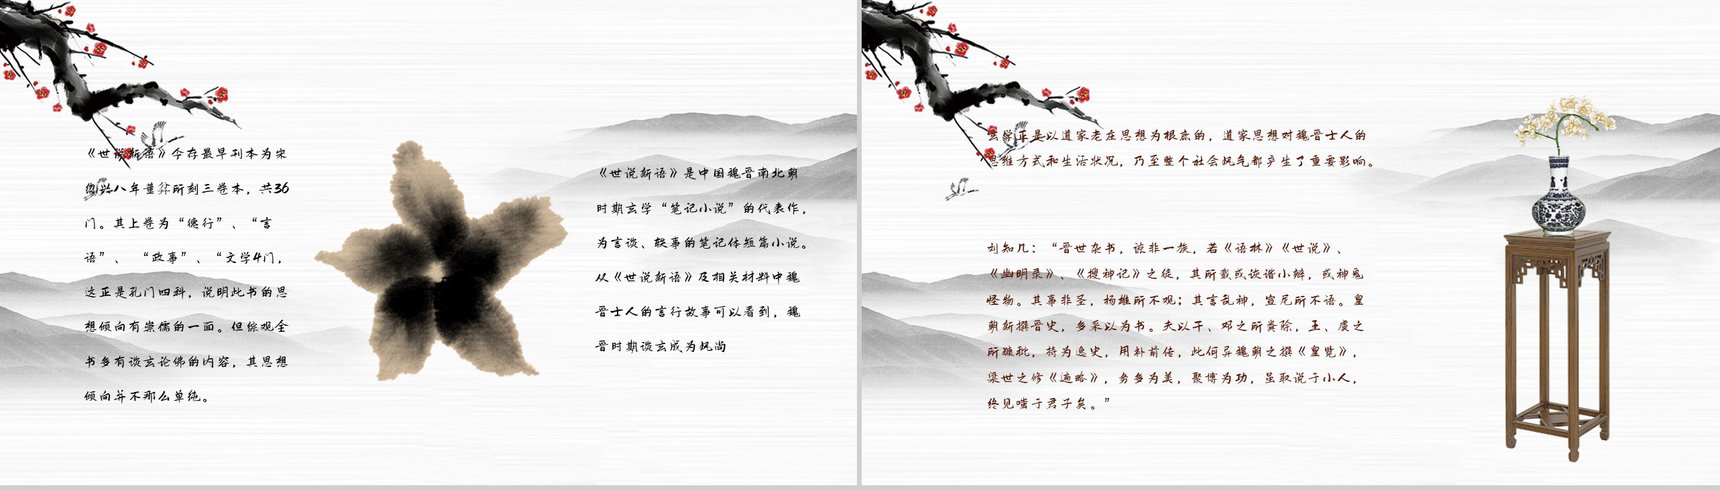 《世说新语》今存最早刊本为宋
绍兴八年董弅所刻三卷本，共36
门。其上卷为“德行”、“言
语”、 “政事”、“文学4门，
这正是孔门四科，说明此书的思
想倾向有崇儒的一面。但综观全
书多有谈玄论佛的内容，其思想
倾向并不那么单纯。
《世说新语》是中国魏晋南北朝
时期玄学“笔记小说”的代表作，
为言谈、轶事的笔记体短篇小说。
从《世说新语》及相关材料中魏
晋士人的言行故事可以看到，魏
晋时期谈玄成为风尚
玄学正是以道家老庄思想为根底的，道家思想对魏晋士人的
思维方式和生活状况，乃至整个社会风气都产生了重要影响。
刘知几：“晋世杂书，谅非一族，若《语林》《世说》、
《幽明录》、《搜神记》之徒，其所载或诙谐小辩，或神鬼
怪物。其事非圣，杨雄所不观；其言乱神，宣尼所不语。皇
朝新撰晋史，多采以为书。夫以干、邓之所粪除，王、虞之
所糠秕，持为逸史，用补前传，此何异魏朝之撰《皇览》，
梁世之修《遍略》，务多为美，聚博为功，虽取说于小人，
终见嗤于君子矣。”